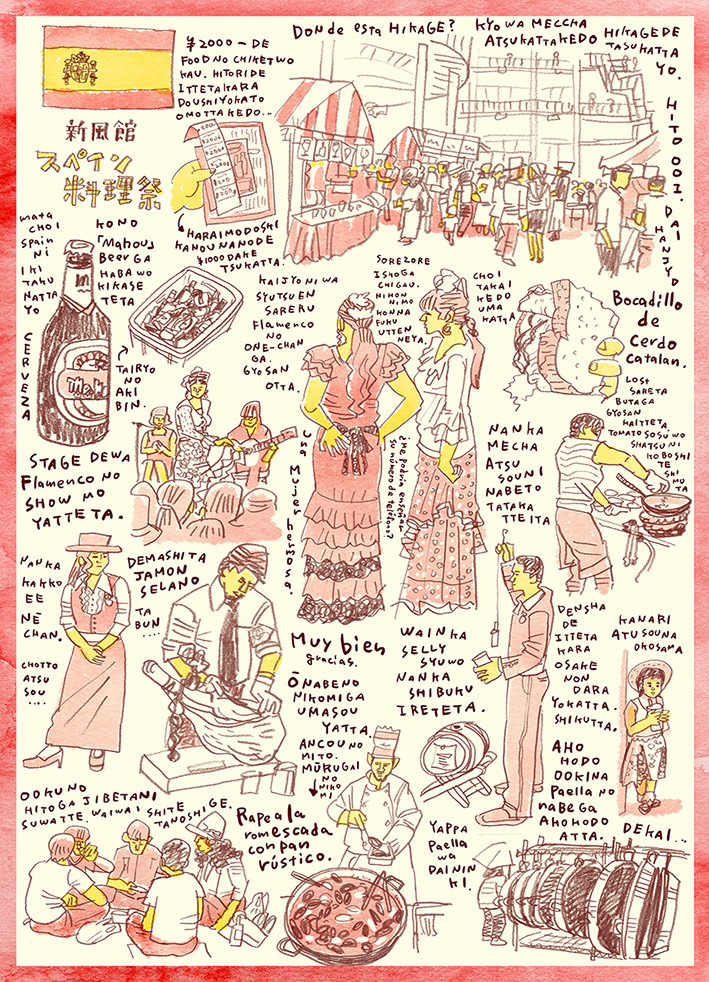 ¥2000-DE
FOOD NO CHIKETWO
KAU. HITORIDE
ITTETAKARA
DOUSHIYOKATO
OMOTTAKEDO...
DONDE ESTA HIKAGE?
KYO WA MECCHA
ATSUKATTAKEDO
HIKAGEDE
TASUKATTA
YO.
HITO OOI. DAI
HANJYO
新風館
スペイン
料理祭
HARAIMODOSHI
KANOUNANODE
¥1000 DAKE
TSUKATTA.
MATA
CHOI
SPAIN
NI
IKI
TAKU
NATTA
YO
KONO
「Mahou」
Beer GA
HABA WO
KIKASE
TETA
CERVEZA
TAIRYO
NO
AKI
BIN.
KAIJYO NI WA
SYUTSUEN
SARERU
Flamenco
NO
ONE-CHAN
GA.
GYOSAN
OTTA.
SOREZORE
ISHOGA
CHIGAU.
NIHON
NIMO
KONNA
FUKU
UTTEN
NEYA.
CHOI
TAKAI
KEDO
UMA
KATTA
Bocadillo
de
Cerdo
Catalan.
LOST
SARETA
BUTAGA
GYOSAN
HAITTETA.
TOMATO SOSU WO
SHATSU NI
KOBOSHI
TE
SHI
MO
TA
STAGE DEWA
Flamenco NO
SHOW MO
YATTETA.
Usa Mujer hermosa.
¿Me podría enseñar
su número de teléfono?
NANKA
MECHA
ATSU
SOUNI
NABETO
TATAKA
TTEITA
NANKA
KAKKO
EE
NĒ
CHAN.
CHOTTO
ATSU
SOU
....
DEMASHITA
JAMON
SELANO
TA
BUN
....
Muy bien
gracias.
ŌNABENO
NIKOMIGA
UMASOU
YATTA.
ANCOU NO
MITO.
MŪRUGAI
NO
NIKO
MI
WAINKA
SELLY
SYUWO
NANKA
SHIBUKU
IRETETA.
DENSHA
DE
ITTETA
KARA
OSAKE
NON
DARA
YOKATTA.
SHIKUTTA.
KANARI
ATUSOUNA
OKOSAMA
OOKUNO
HITOGA JIBETANI
SUWATTE. WAIWAI SHITE
TANOSHIGE.
Rape a la
romescada
con pan
rústico.
YAPPA
Paella
WA
DAININ
KI.
AHO
HODO
OOKINA
Paella NO
nabe GA
AHOHODO
ATTA.
DEKAI...